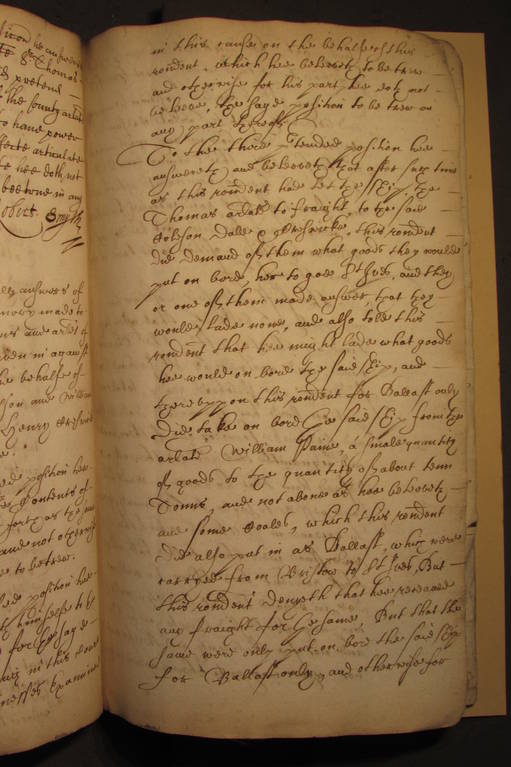 ition he answere
the sd Thomas
ds pretend
of the county articu
to have power
fforte articulate
he hee doth not
beetrue in any
Robert Smyth
ally answers of
mony made to
ens and artes of
ven in against
he behalfe of
son and William
Henry
position hee
the Contents of
forth as the
and not otherwise
e to be trew.
position hee
himselfe to be
for the saye
in this cause
nesses examined
in this cause on the behalfe of this
rondent, which hee beleeveth to be trew
and otherwise for his part hee doth not
beleeve, the saye position to be trew in
any part thereof.
To the third ptended position hee
answereth and beleeveth that after such time
as this rondent had lett the shipp, the
Thomas arlate to fraight, to the said
Hobson Dale & this rondent
did demand of them what goods they woulde
put on bord, her to goe St Ives, and they
or one of them made answer, that they
would lade none, and also told this
rondent that hee might lade what goods
hee would on bord the said shipp, and
thereuppon this rondent for Ballast only
did take on bord the said shipp from the
arlate William Paine, a small quantity
of goods to the quantity of about tenn
Tonns, and not above as hee beleeveth
and some Coales, which this rondent
did also putt in as Ballast, which were
carryed from Bristow to St Ives, But
this rondent denyeth that hee received
any fraight for the same, But that the
same were only putt on bord the said shipp
for Ballast only, and otherwise for